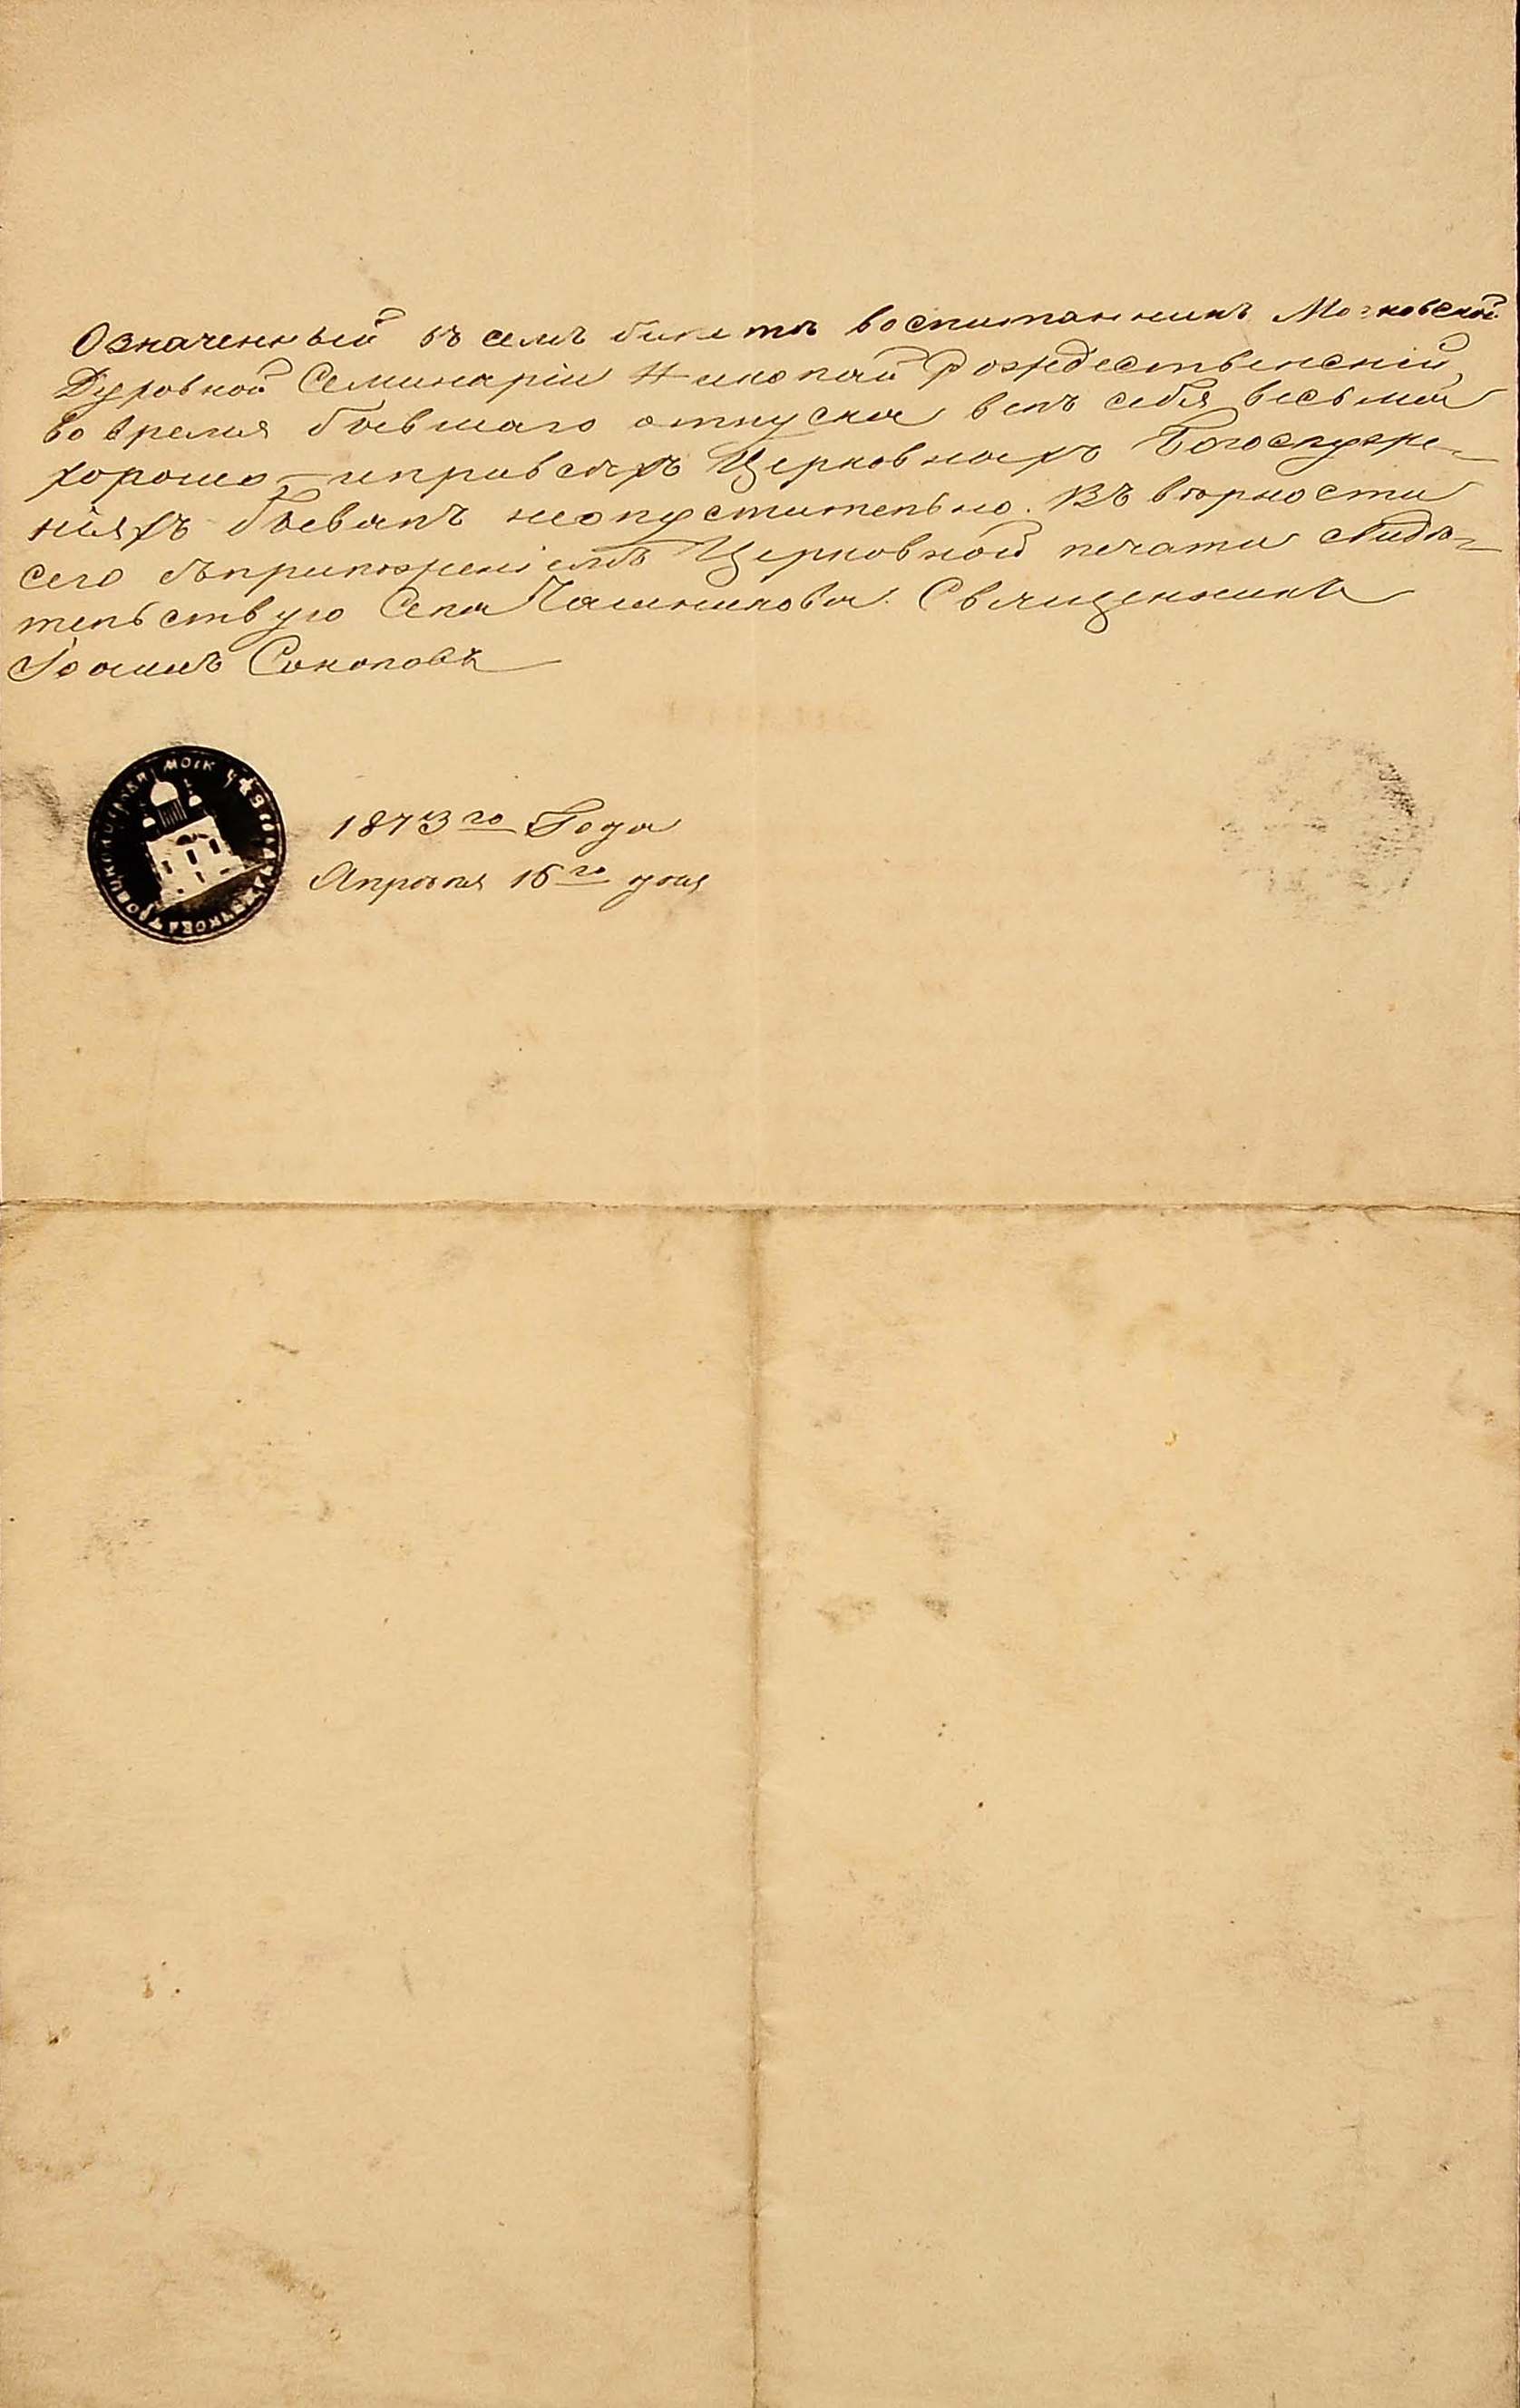 Означенный въ семъ билетѣ воспитанникъ Московской
Духовной Семинаріи Николай Рождественскій,
во время бывшаго отпуска велъ себя весьма
хорошо – и при всѣхъ Церковныхъ Богослуже-
ніяхъ бывалъ неопустительно. Въ вѣрности
сего съ приложеніемъ Церковной печати свидѣ-
тельствую Села Чашникова Священникъ
Іоаннъ Соколовъ
1873го Года
Апрѣля 16го дня
МОСК